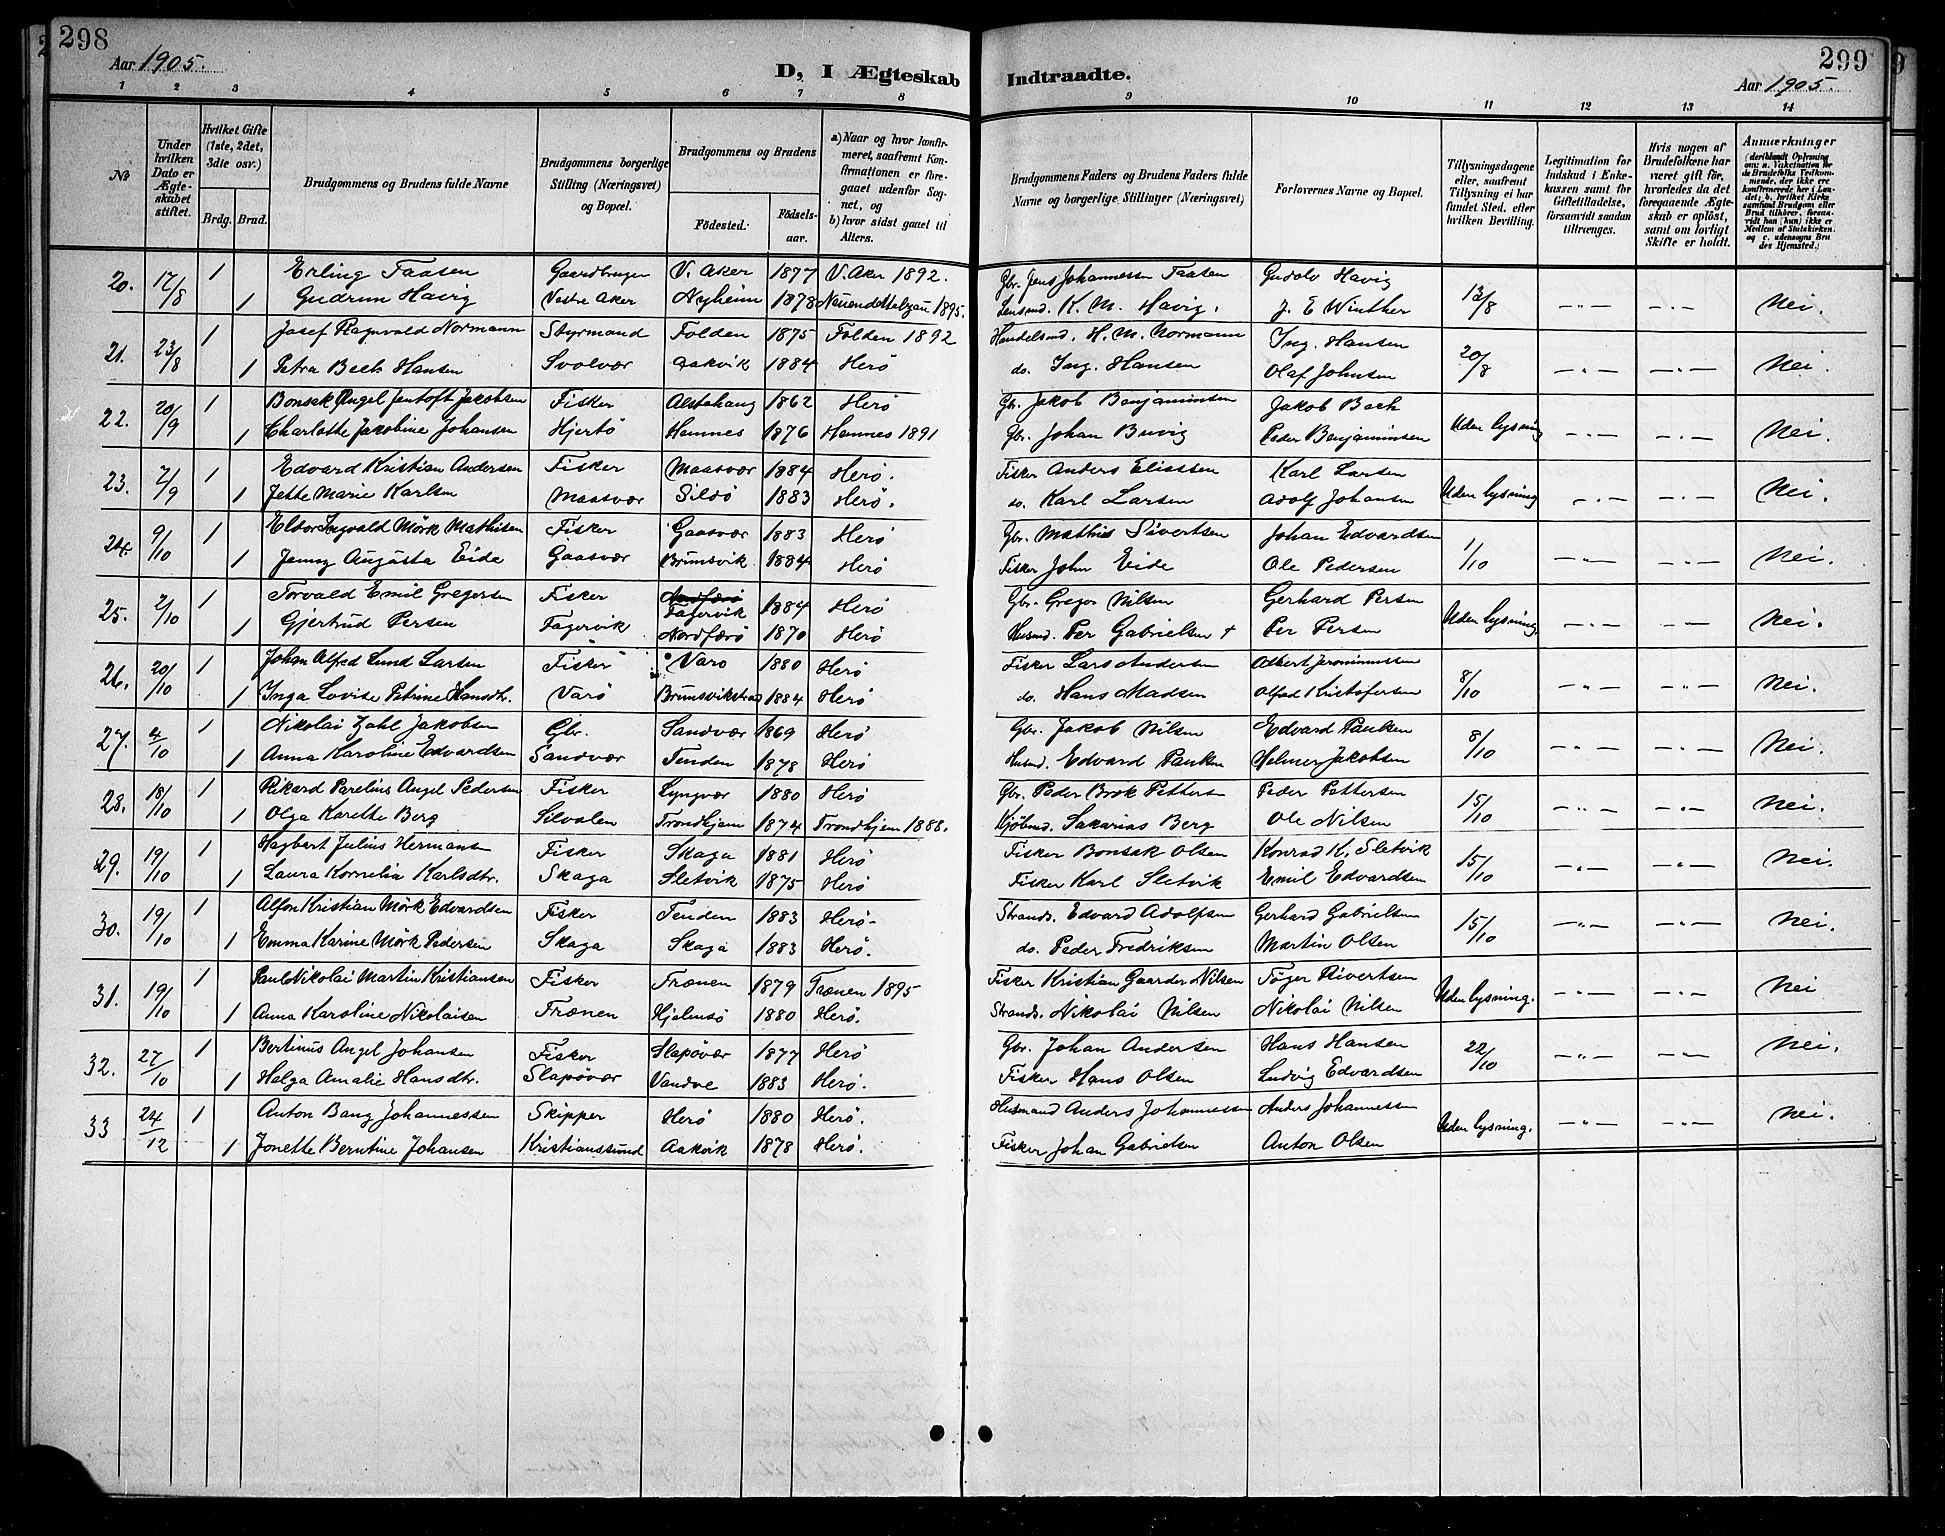 298
Aar 1905.
D, I Ægteskab
1 2 3 4 5 6 7 8
No
Under hvilken Dato er Ægteskabet stiftet.
Hvilket Gifte (1ste, 2det, 3dte osv.)
Brdg. Brud.
Brudgommens og Brudens fulde Navne
Brudgommens borgerlige Stilling (Næringsvei) og Bopæl.
Brudgommens og Brudens
Fødested. Fødselsaar.
a) Naar og hvor konfirmeret, saafremt Konfirmationen er foregaaet udenfor Sognet, og
b) hvor sidst gaaet til Alters.
20. 17/8 1 Erling Taasen Gaardbruger V. Aker 1877 V. Aker 1892.
1 Gudrun Havig Vestre Aker Nyheim 1878 1895.
21. 23/8 1 Josef Ragnvald Normann Styrmand Folden 1875 Folden 1892
1 Petra Bech Hansen Svolvær Aakvik 1884 Herø
22. 20/9 1 Bonsak Angel Jentoft Jakobsen Fisker Alstahaug 1862 Herø
1 Charlotte Jakobine Johansen Hjertø Hemnes 1876 Hemnes 1891
23. 2/9 1 Edvard Kristian Andersen Fisker Maasvær 1884 Herø.
1 Jette Marie Karlsen Maasvær Sildø 1883 Herø.
24. 9/10 1 Eldor Ingvald Mørk Mathisen Fisker Gaasvær 1883 Herø
1 Jenny Augusta Eide Gaasvær Brunsvik 1884 Herø
25. 2/10 1 Torvald Emil Gregersen Fisker Fagervik 1884 Herø
1 Gjertrud Persen Fagervik Nordfærø 1870 Herø
26. 20/10 1 Johan Alfred Lund Larsen Fisker Varø 1880 Herø
1 Inga Lovise Petrine Hansdtr. Varø Brunsvikstrad 1884 Herø
27. 4/10 1 Nikolai Zahl Jakobsen Gbr. Sandvær 1869 Herø
1 Anna Karoline Edvardsen Sandvær Tenden 1878 Herø
28. 18/10 1 Rikard Parelius Angel Pedersen Fisker Lyngvær 1880 Herø
1 Olga Karette Berg Silvalen Trondhjem 1874 Trondhjem 1888.
29. 19/10 1 Hagbart Julius Hermansen Fisker Skaga 1881 Herø
1 Laura Kornelia Karlsdtr. Skaga Sletvik 1875 Herø
30. 19/10 1 Alfon Kristian Mørk Edvardsen Fisker Tenden 1883 Herø.
1 Emma Karine Mørk Pedersen Skaga Skaga 1883 Herø.
31. 19/10 1 Paul Nikolai Martin Kristiansen Fisker Trænen 1879 Trænen 1895
1 Anna Karoline Nikolaisen Trænen Hjelmsø 1880 Herø.
32. 27/10 1 Bertinus Angel Johansen Fisker Slapøvær 1877 Herø
1 Helga Amalie Hansdtr. Slapøvær Vandve 1883 Herø.
33 24/12 1 Anton Bang Johannessen Skipper Herø 1880 Herø.
1 Jonette Berntine Johansen Kristianssund Aakvik 1878 Herø.
299
Aar 1905.
Indtraadte.
9 10 11 12 13 14
Brudgommens Faders og Brudens Faders fulde Navne og borgerlige Stillinger (Næringsvei)
Forlovernes Navne og Bopæl.
Tillysningsdagene eller, saafremt Tillysning ei har fundet Sted, efter hvilken Bevilling.
Legitimation for Indskud i Enkekassen samt for Giftetilladelse, forsaavidt saadan tiltrænges.
Hvis nogen af Brudefolkene har været gift før, hvorledes da det foregaaende Ægteskab er opløst, samt om lovligt Skifte er holdt.
Anmærkninger
(deriblandt Oplysning om: a. Vaccination for de Brudefolks Vedkommende, der ikke ere konfirmerede her i Landet; b. hvilket Kirkesamfund Brudgom eller Brud tilhører, forsaavidt han (hun) ikke er Medlem af Statskirken, og c. udensogns Brudes Hjemsted.)
Gbr. Jens Johannessen Taasen Gudolv Havig 13/8 — " — — " — Nei.
Lensmd. K. M. Havig. J. E Winther
Handelsmd. H. M. Normann Ing. Hansen 20/8 — " — — " — Nei.
do. Ing. Hansen Olaf Johnsen
Gbr. Jakob Benjaminsen Jakob Bech Uden lysning — " — — " — Nei.
Gbr. Johan Buvig Peder Benjaminsen
Fisker Anders Eliassen Karl Larsen Uden lysning — " — — " — Nei.
do. Karl Larsen Adolf Johansen
Gbr. Mathus Sivertsen Johan Edvardsen 1/10 — " — — " — Nei.
Fisker John Eide Ole Pedersen
Gbr. Gregor Nilsen Gerhard Persen Uden lysning. — " — — " — Nei.
Husmd. Per Gabrielsen + Per Persen
Fisker Lars Andersen Albert Jeronimussen 8/10 — " — — " — Nei.
do. Hans Madsen Olfad Kristofersen
Gbr. Jakob Nilsen Edvard Paulsen 8/10 — " — — " — Nei.
Husmd. Edvard Paulsen Helmer Jakobsen
Gbr. Peder Brok Pettersen Peder Pettersen 15/10 — " — — " — Nei.
Kjøbmd. Sakarias Berg Ole Nilsen
Fisker Bonsak Olsen Konrad K. Sletvik 15/10 — " — — " — Nei.
Fisker Karl Sletvik Emil Edvardsen
Strands. Edvard Adolfsen Gerhard Gabrielsen 15/10 — " — — " — Nei.
do. Peder Fredriksen Martin Olsen
Fisker Kristian Gaarder Nilsen Tøger Sivertsen Uden lysning. — " — — " — Nei
Strands. Nikolai Nilsen Nikolai Nilsen
Gbr. Johan Andersen Hans Hansen 22/10 — " — — " — Nei.
Fisker Hans Olsen Ludvig Edvardsen
Husmand Anders Johannessen Anders Johannessen Uden lysning. — " — — " — Nei.
Fisker Johan Gabrielsen Anton Olsen